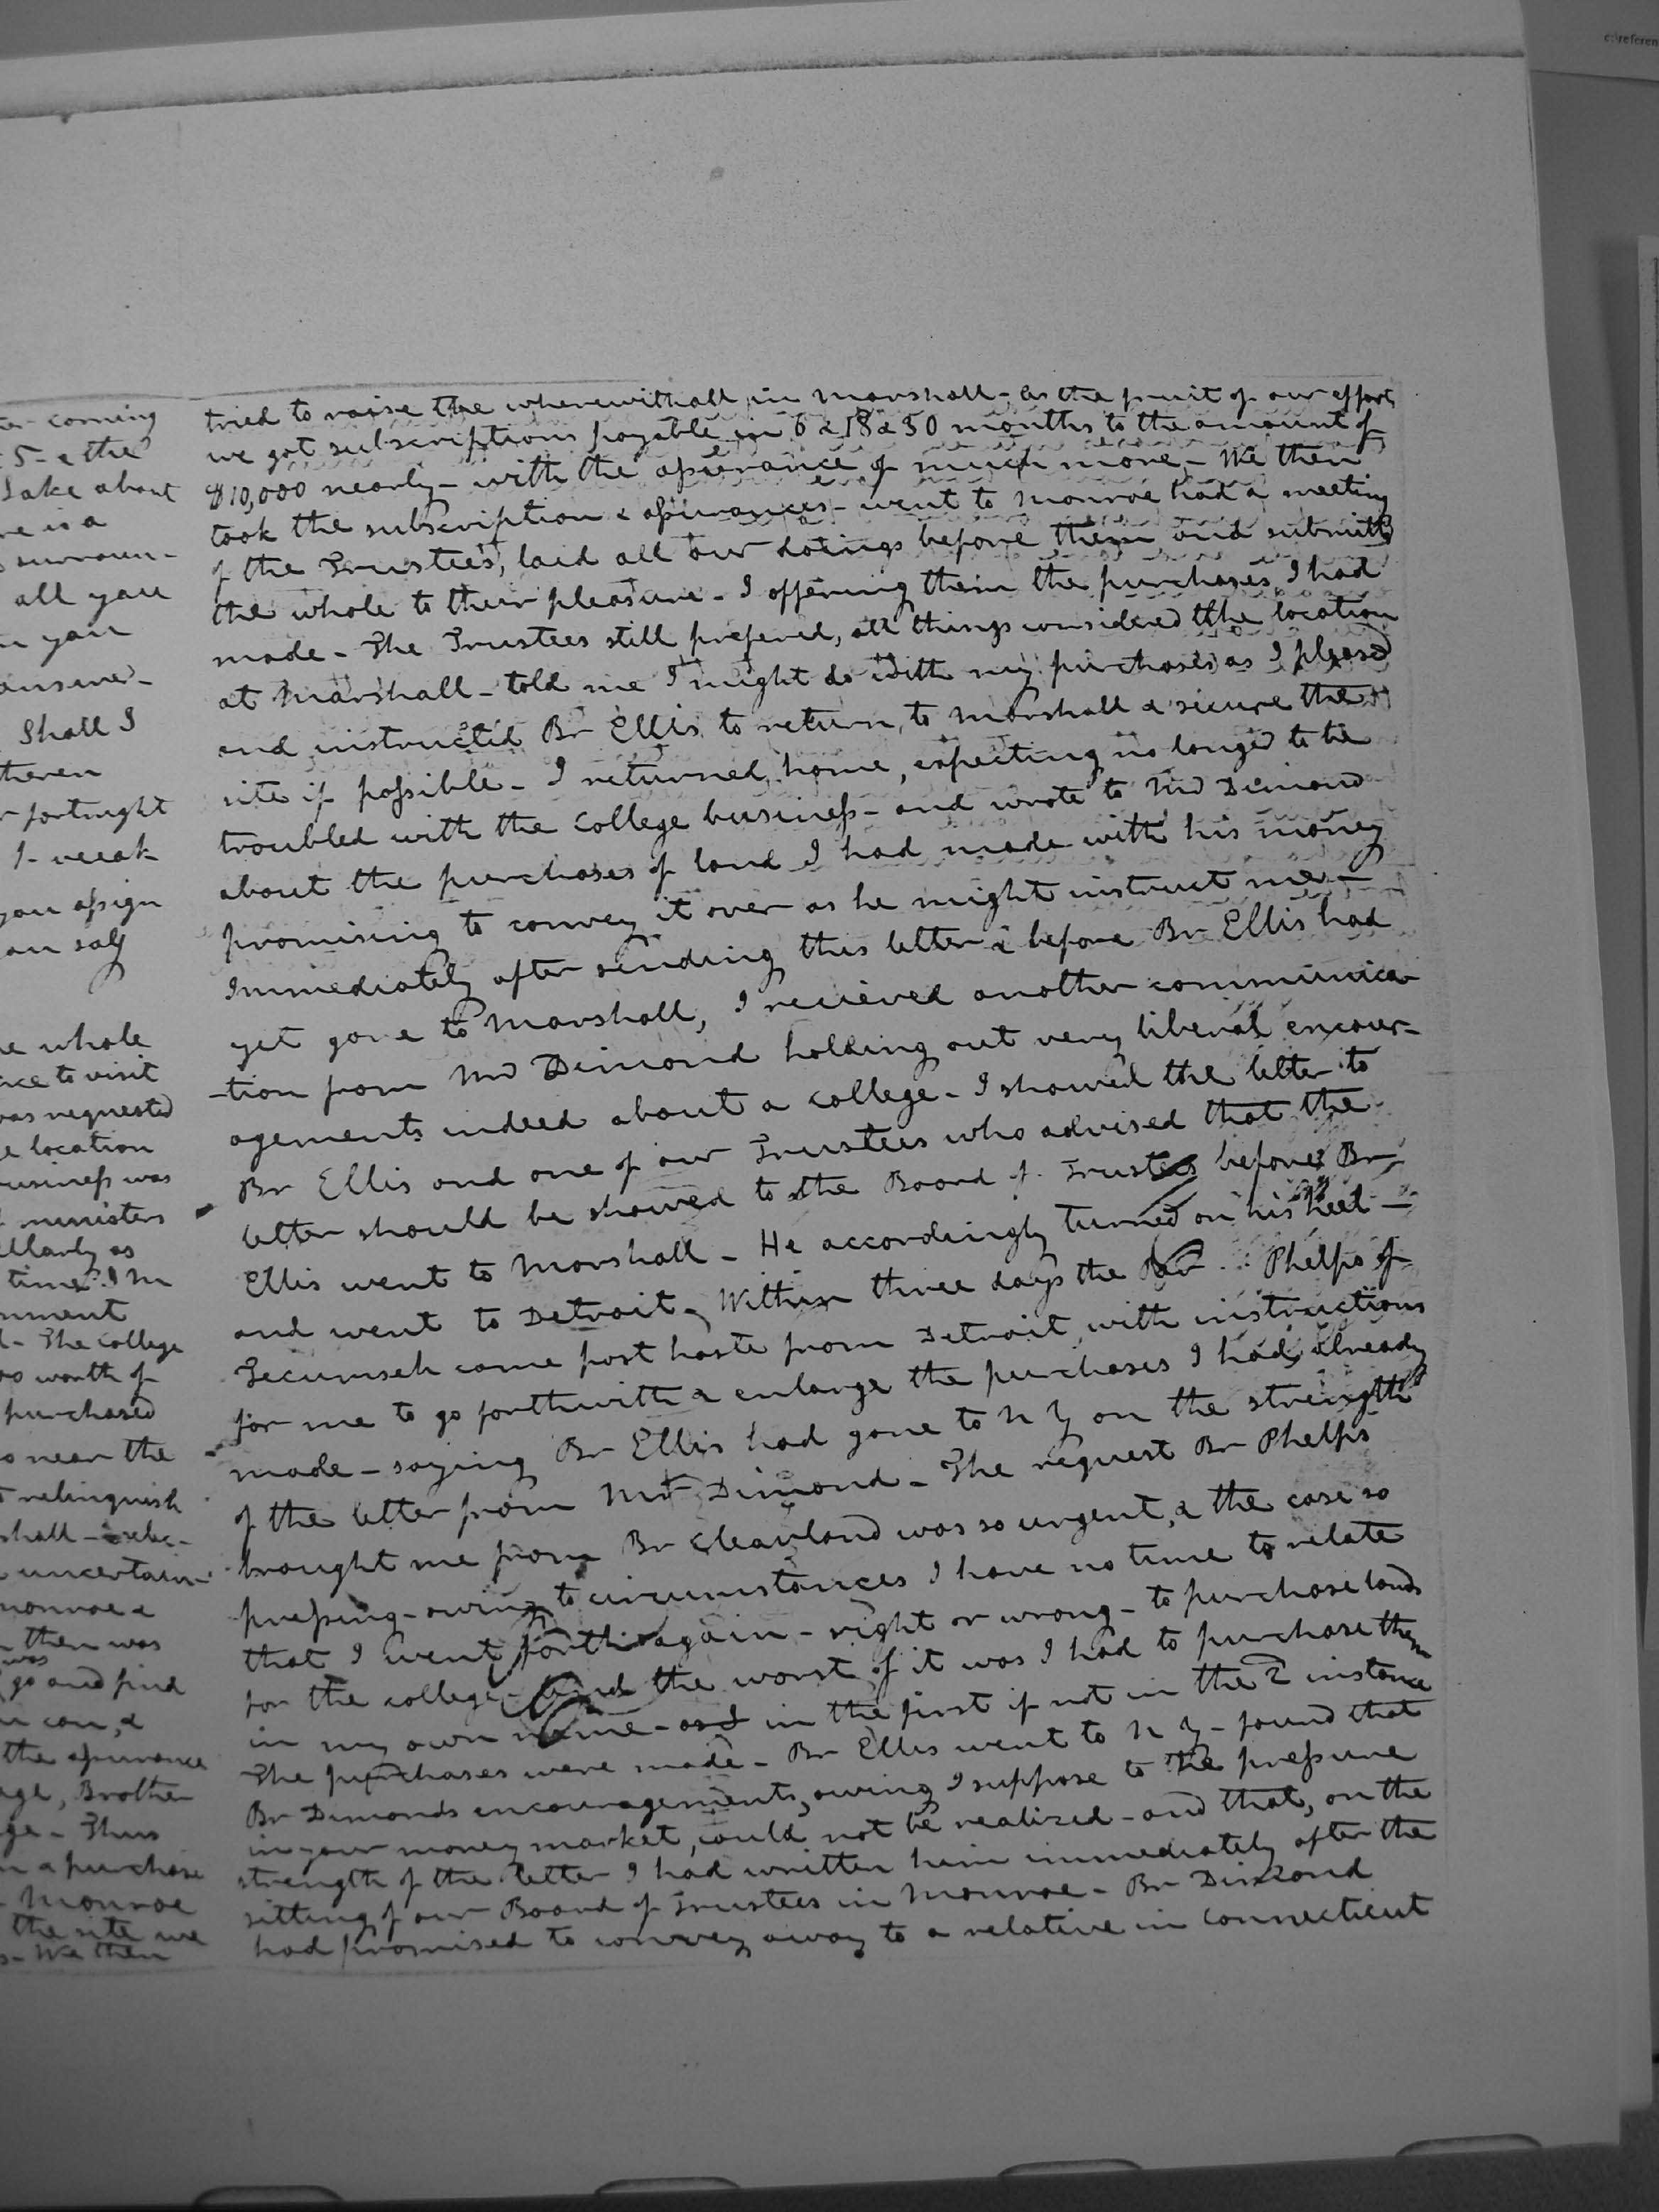 c:\referen
ter coming
5 - & the
Lake about
re is a
surroun-
all you
n you
answer -
Shall I
theren
fortnight
1 - week
you assign
an say
e whole
ce to visit
was requested
e location
usiness was
ministers
larly as
time. I m
nment
- The college
00 worth of
purchased
o near the
relinquish
shall - selec-
uncertain-
monroe &
then was
was
go and find
u can, &
the assurance
age, Brother
ge - Thus
n a purchase
Monroe
the site we
s - We then
tried to raise the wherewithall in Marshall - As the fruit of our efforts
we got subscriptions payable in 6 & 18 & 30 months to the amount of
$10,000 nearly - with the assurance of much more - We then
took the subscription & assurances - went to Monroe had a meeting
of the Trustees, laid all our doings before them and submitted
the whole to their pleasure - I offering them the purchases I had
made - The Trustees still prefered, all things considered the location
at Marshall - told me I might do with my purchases as I pleased
and instructed Br Ellis to return to Marshall & secure the
site if possible - I returned home, expecting no longer to be
troubled with the College business - and wrote to Mr Dimond
about the purchases of land I had made with his money
promising to convey it over as he might instruct me -
Immediately after sending this letter & before Br Ellis had
yet gone to Marshall, I recieved another communica
-tion from Mr Dimond holding out very liberal encour-
agements indeed about a college - I showed the letter to
Br Ellis and one of our Trustees who advised that the
letter should be showed to the Board of Trustees before Br
Ellis went to Marshall - He accordingly turned on his heel -
and went to Detroit - Within three days the Rev Phelps of
Tecumseh came post haste from Detroit, with instructions
for me to go forthwith & enlarge the purchases I had already
made - saying Br Ellis had gone to N Y on the strength
of the letter from Mr Dimond - The request Br Phelps
brought me from Br Cleavland was so urgent, & the case so
pressing - owing to circumstances I have no time to relate
that I went forth again - right or wrong - to purchase lands
for the college - And the worst of it was I had to purchase them
in my own name - as I in the first if not in the 2 instance
The purchases were made - Br Ellis went to N Y - found that
Br Dimonds encouragements, owing I suppose to the pressure
in your money market, could not be realized - and that, on the
strength of the letter I had written him immediately after the
sitting of our Board of Trustees in Monroe - Br Dimond
had promised to convey away to a relative in Connecticut